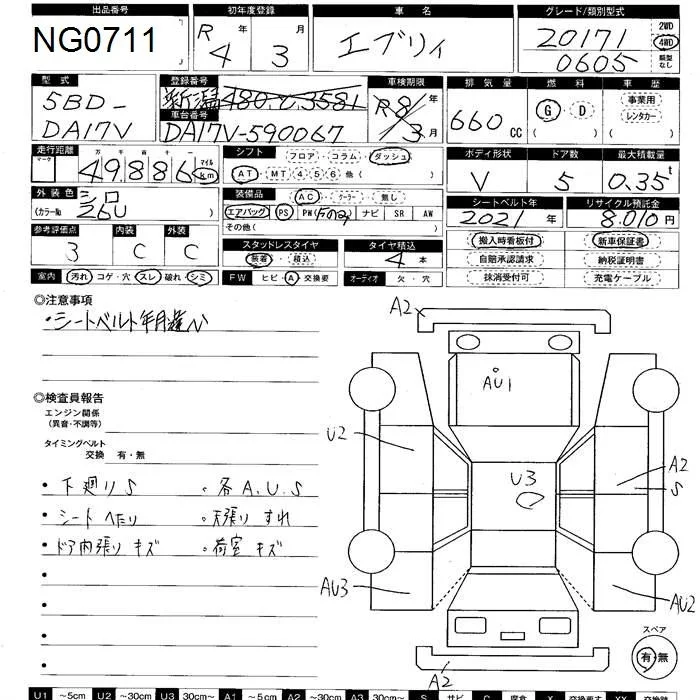 出品番号 初年度登録 車名 グレード/類別型式
NG0711 R 4 年 3 月 エブリィ 20171 2WD 4WD
0605 類型なし
型式 登録番号 車検期限 排気量 燃料 車歴
5BD-
DA17V 新潟 480 く 3581 R8 年 3 月 660 CC G・D 事業用 レンタカー
車台番号
DA17V-590067
走行距離 シフト フロア・コラム・ダッシュ ボディ形状 ドア数 最大積載量
マーク 万 千 百 十 一
49,886 マイル km AT・MT 4 5 6 他( ) V 5 0.35t
外装色 装備品 AC・クーラー・無し シートベルト年 リサイクル預託金
シロ
(カラーNo. 26U ) エアバッグ PS PW ナビ SR AW 2021 年 8,010 円
その他( )
参考評価点 内装 外装 スタッドレスタイヤ タイヤ積込 搬入時看板付 新車保証書
3 C C 装着・積込 4 本 自賠承認請求 納税証明書
室内 汚れ コゲ・穴 スレ 破れ・シミ FW ヒビ・A 交換要 オーディオ 欠・穴 抹消受付可 充電ケーブル
◎注意事項
・シートベルト年月違い
◎検査員報告
エンジン関係
(異音・不調等)
タイミングベルト
交換 有・無
・下廻りS 。各A.U.S
・シートへたり 。天張りすれ
・ドア内張りキズ 。荷室キズ
A2
AU1
U2
U3
A2
S
AU3
AU2
A2
スペア
有・無
U1 ~5cm U2 ~30cm U3 30cm~ A1 ~5cm A2 ~30cm A3 30cm~ S サビ C 腐食 X 交換要 XX 交換跡